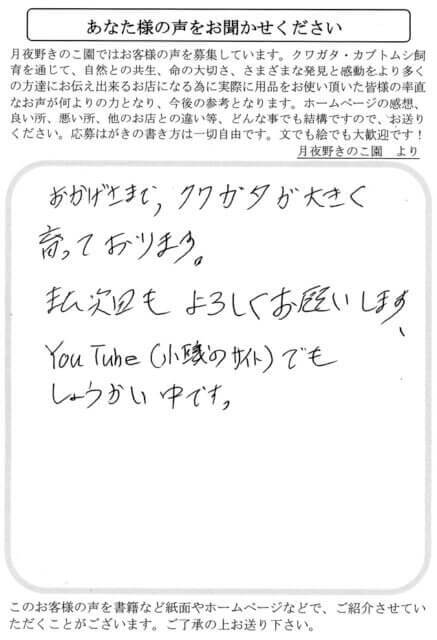 あなた様の声をお聞かせください
月夜野きのこ園ではお客様の声を募集しています。クワガタ・カブトムシ飼
育を通じて、自然との共生、命の大切さ、さまざまな発見と感動をより多く
の方達にお伝え出来るお店になる為に実際に用品をお使い頂いた皆様の率直
なお声が何よりの力となり、今後の参考となります。ホームページの感想、
良い所、悪い所、他のお店との違い等、どんな事でも結構ですので、お送り
ください。応募はがきの書き方は一切自由です。文でも絵でも大歓迎です！
月夜野きのこ園　より
おかげさまで，クワガタが大きく
育っております。
また次回も よろしくお願いします、
YouTube（小 のサイト）でも
しょうかい中です。
このお客様の声を書籍など紙面やホームページなどで、ご紹介させてい
ただくことがございます。ご了承の上お送り下さい。